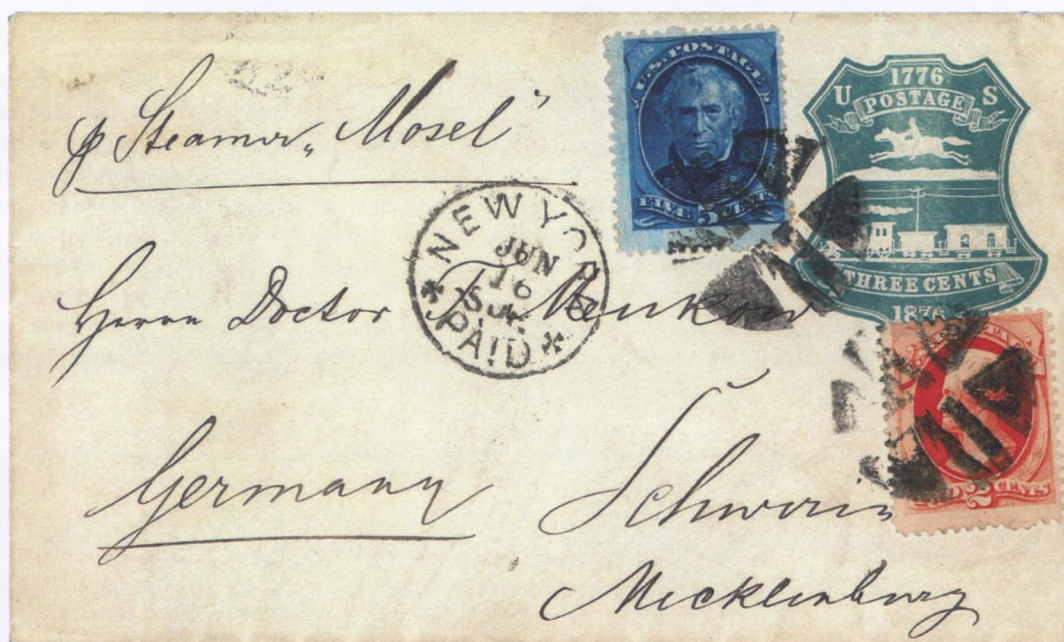 p Steamer „Mosel”
U.S. POSTAGE
FIVE 5 CENTS
1776
U POSTAGE S
THREE CENTS
1876
NEW YORK
JUN
16
PAID
Herrn Doctor F. Menkow
2 CENTS
Germany
Schwerin
Mecklenburg